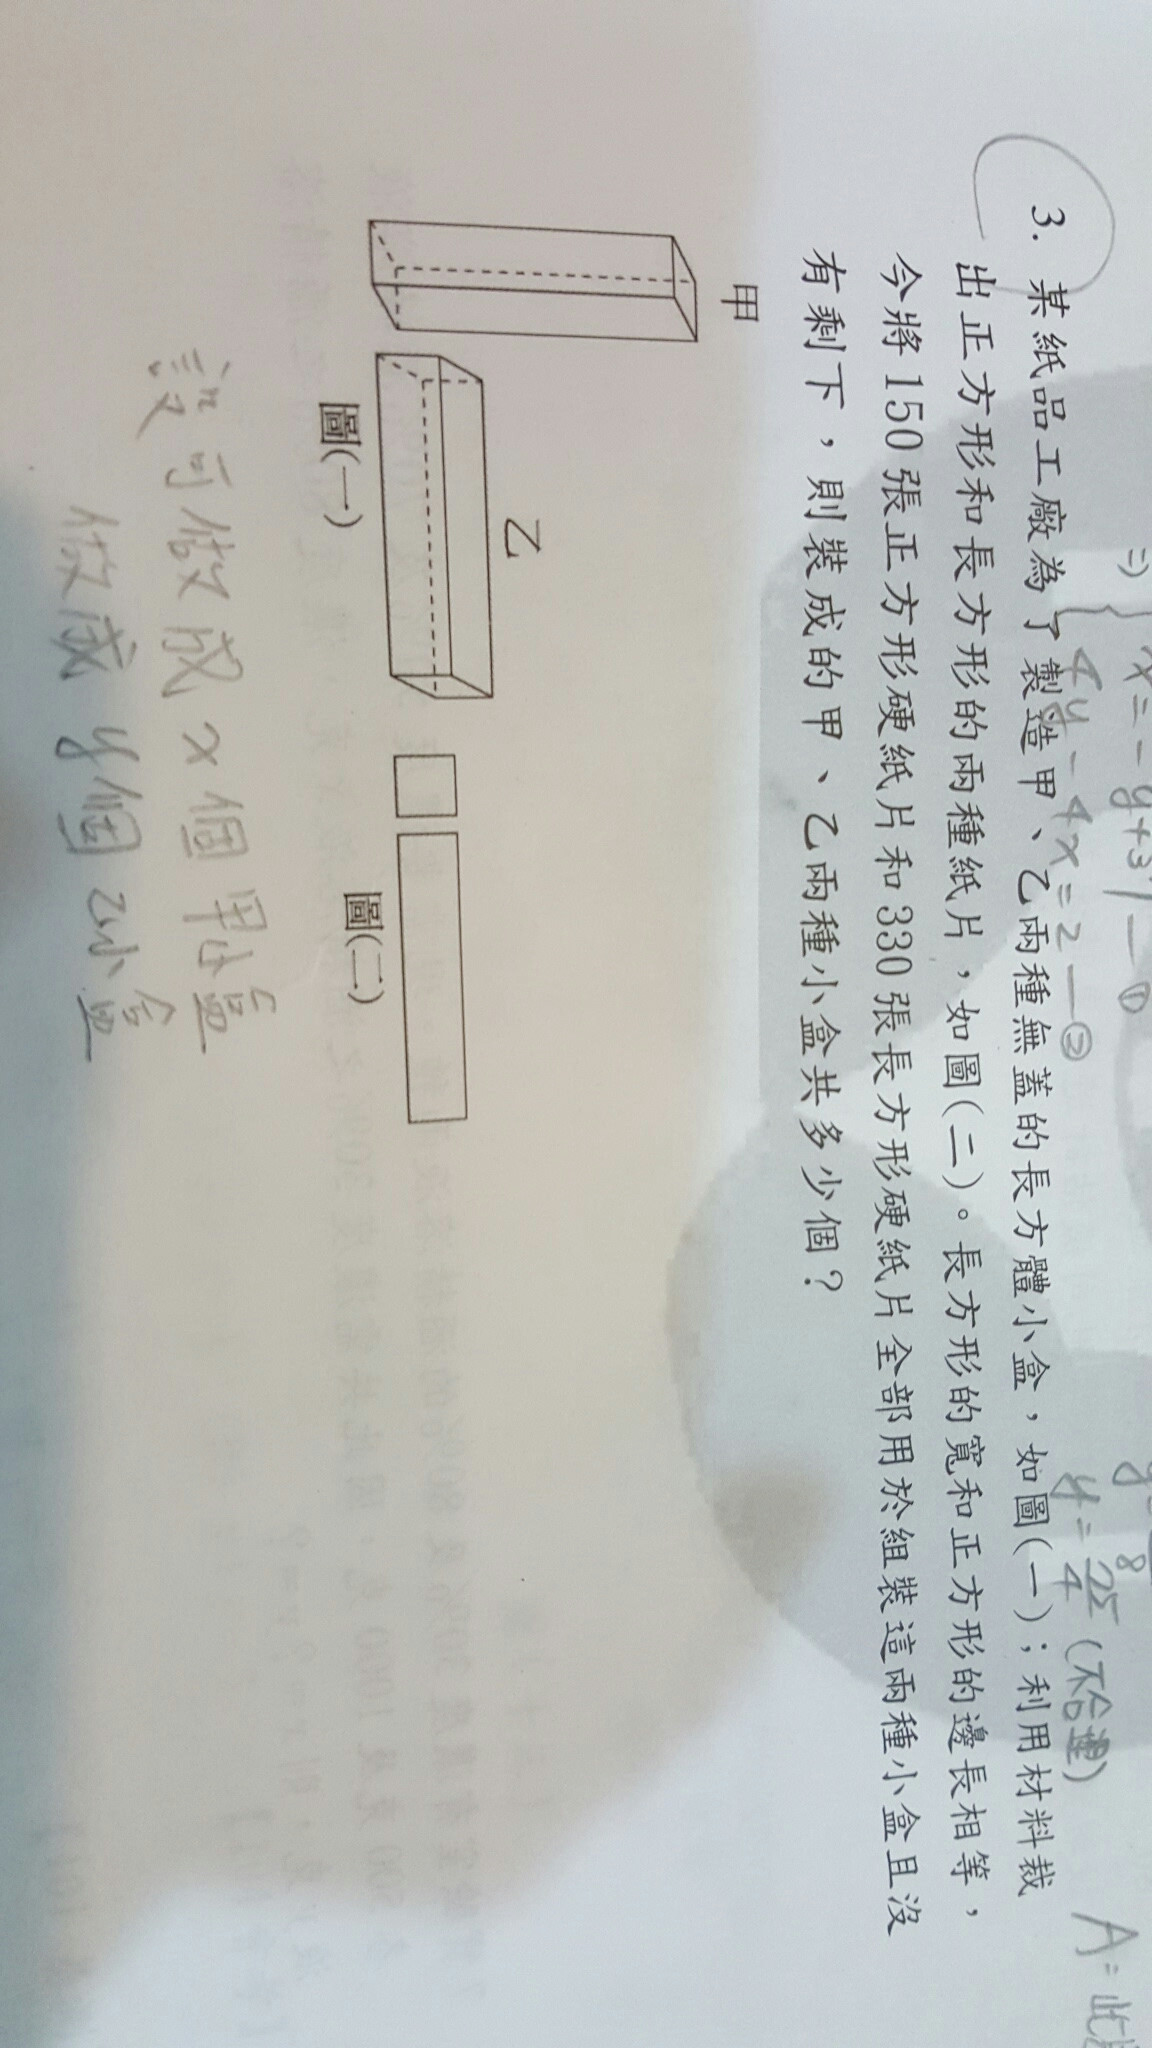 =) { x = - y + 31 — ①
4y - 4x = 2 — ②
y = 25/4 (不合理)
3. 某紙品工廠為了製造甲、乙兩種無蓋的長方體小盒，如圖(一)；利用材料裁
出正方形和長方形的兩種紙片，如圖(二)。長方形的寬和正方形的邊長相等，
今將150張正方形硬紙片和330張長方形硬紙片全部用於組裝這兩種小盒且沒
有剩下，則裝成的甲、乙兩種小盒共多少個？
甲
乙
圖(一)
圖(二)
設可做成 x 個甲小盒
做成 y 個乙小盒